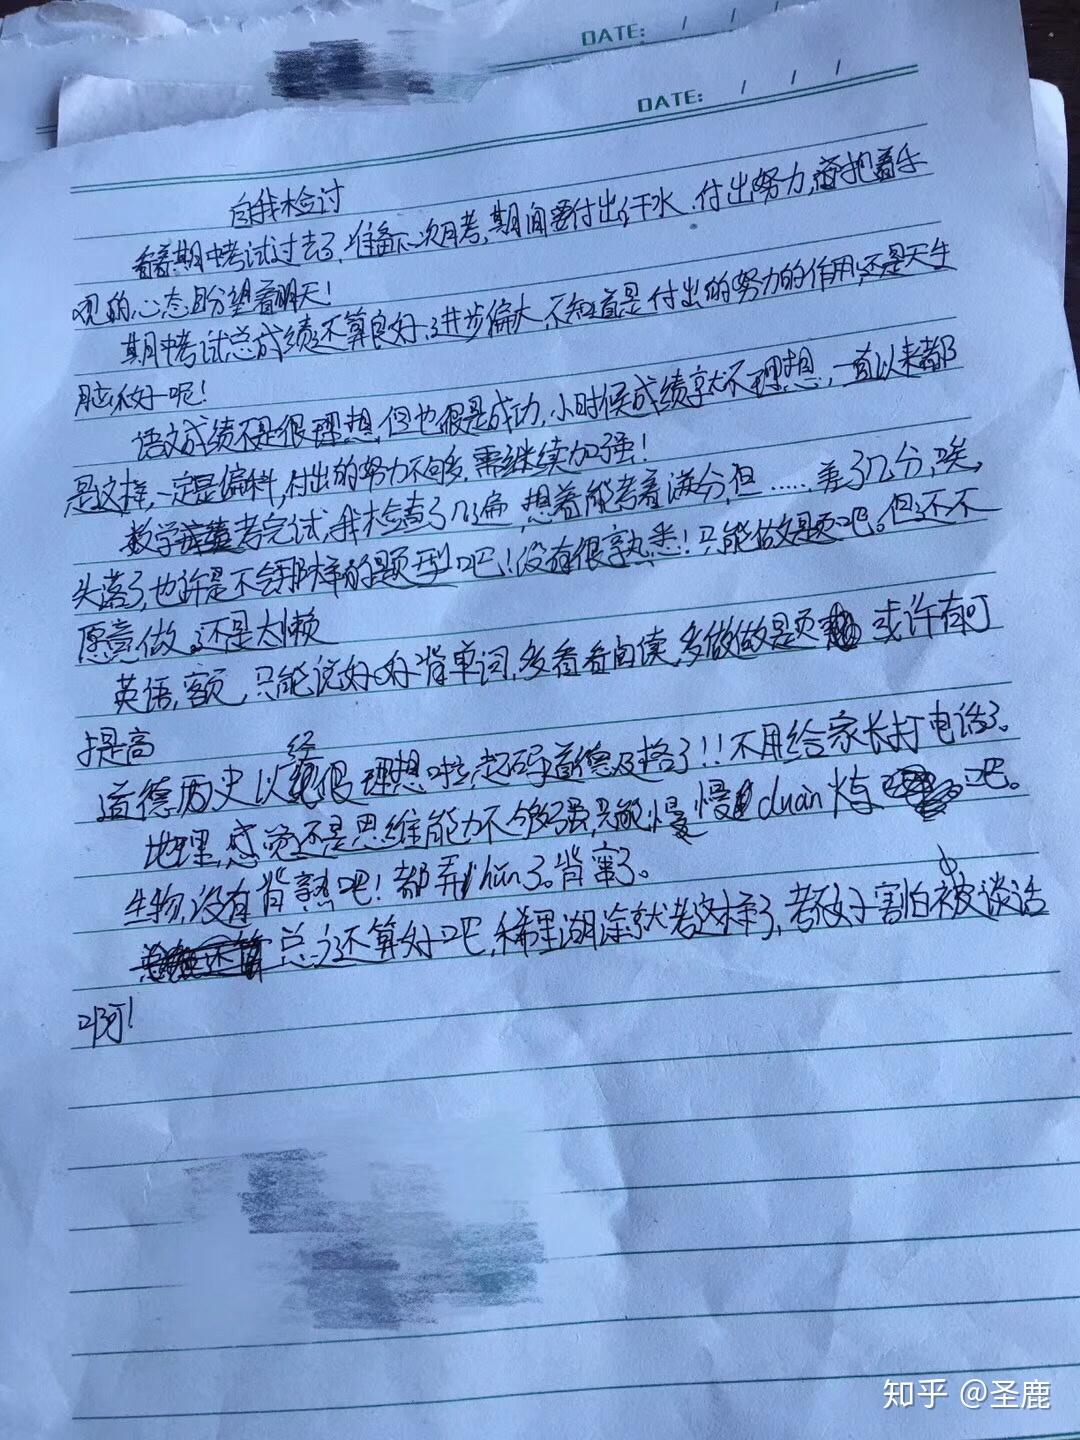 DATE: / / /
DATE: / / /
自我检讨
看着期中考试过去了,准备下次月考,期间要付出汗水、付出努力,抱着乐
观的心态盼望着明天!
期中考试总成绩还算良好,进步偏大,不知道是付出的努力的作用,还是天生
脑不好呢!
语文成绩不是很理想,但也很是成功,小时候成绩就不理想,一直以来都
是这样,一定是偏科,付出的努力不句多,需继续加强!
数学考完试,我检查了几遍,想着能考着满分,但……差了几分,唉,
头落了,也许是不会那样的题型吧!没有很熟悉!只能做做题吧。但还不
愿意做,还是太懒
英语,额,只能说好好背单词,多看看自读,多做做是页 或许有可
提高
道德历史以经很理想啦,起码道德及格了!!不用给家长打电话了。
地理,感觉还是思维能力不够强,只能慢慢duàn炼吧。
生物,没有背熟吧!都弄hùn了。背窜了。
总之还算好吧,稀里湖涂就考这样了,考不好害怕被谈话
啊!
知乎 @圣鹿